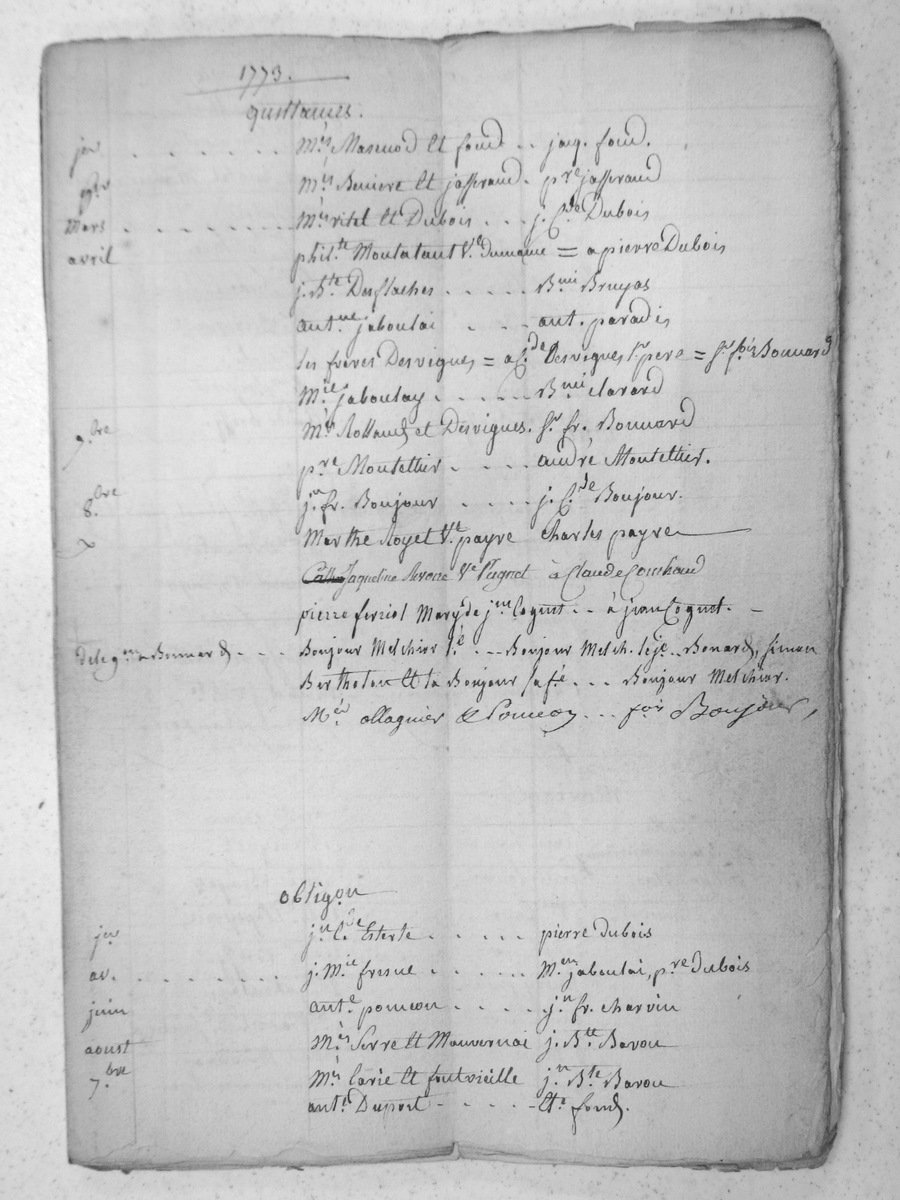 1773.
quittances.
jer . . . . . . Mrs Masmod et fond . . jaq. fond.
9bre Mrs Beniere et jasserand . pre jasserand
Mars . . . . . . . Mrs vitel et Dubois . . . j. Cde Dubois
avril phil.te Montatant Ve Dumaine = a pierre Dubois
j. Bte Desflaches . . . . . Bmi Bruyas
ant.ne jaboulai . . . ant. paradis
les freres Desvignes = a C.de Desvignes pere = fr.ois Bonnard
M.ie jaboulay . . . . . Bmi clarard
7.bre Mrs Rolland et Desvignes. fr. Bonnard
pre Montellier . . . . andré Montellier.
8.bre j.n fr. Bonjour . . . . j. C.de Bonjour.
Marthe Royet Ve payre Charles payre
Jaqueline Ve à Claude Combaud
pierre ferriol Mary de j.ne Coquet . . à jean Coquet. -
Bonnard . . . Bonjour Melchior . . . Bonjour Melch. le je . . Bonard, simon
Bertholon et la Bonjour sa fe . . . Bonjour Melchior.
Mrs ollagnier & Poncon . . . fois Bonjour,
obligon
jer j.n C.de Esterle . . . . . pierre dubois
av. . . . . . . . j. M.ie fresne . . . . . M.en jaboulai, pre dubois
juin ant.e poncon . . . . j.n fr. charvin
aoust Mrs Serre et Mauvernai j. Bte Bavou
7.bre Mrs Carie et fontvieille j.n Bte Bavou
ant.e Duport . . . . . - Et.e fond.